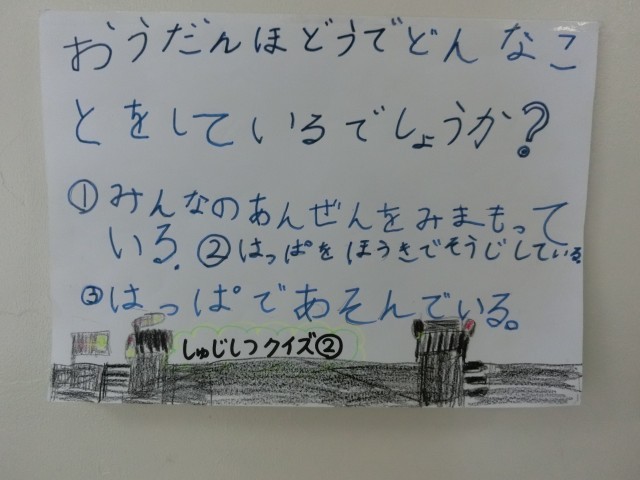 おうだんほどうでどんなこ
とをしているでしょうか?
①みんなのあんぜんをみまもって
いる。②はっぱをほうきでそうじしている。
③はっぱであそんでいる。
しゅじしつクイズ②